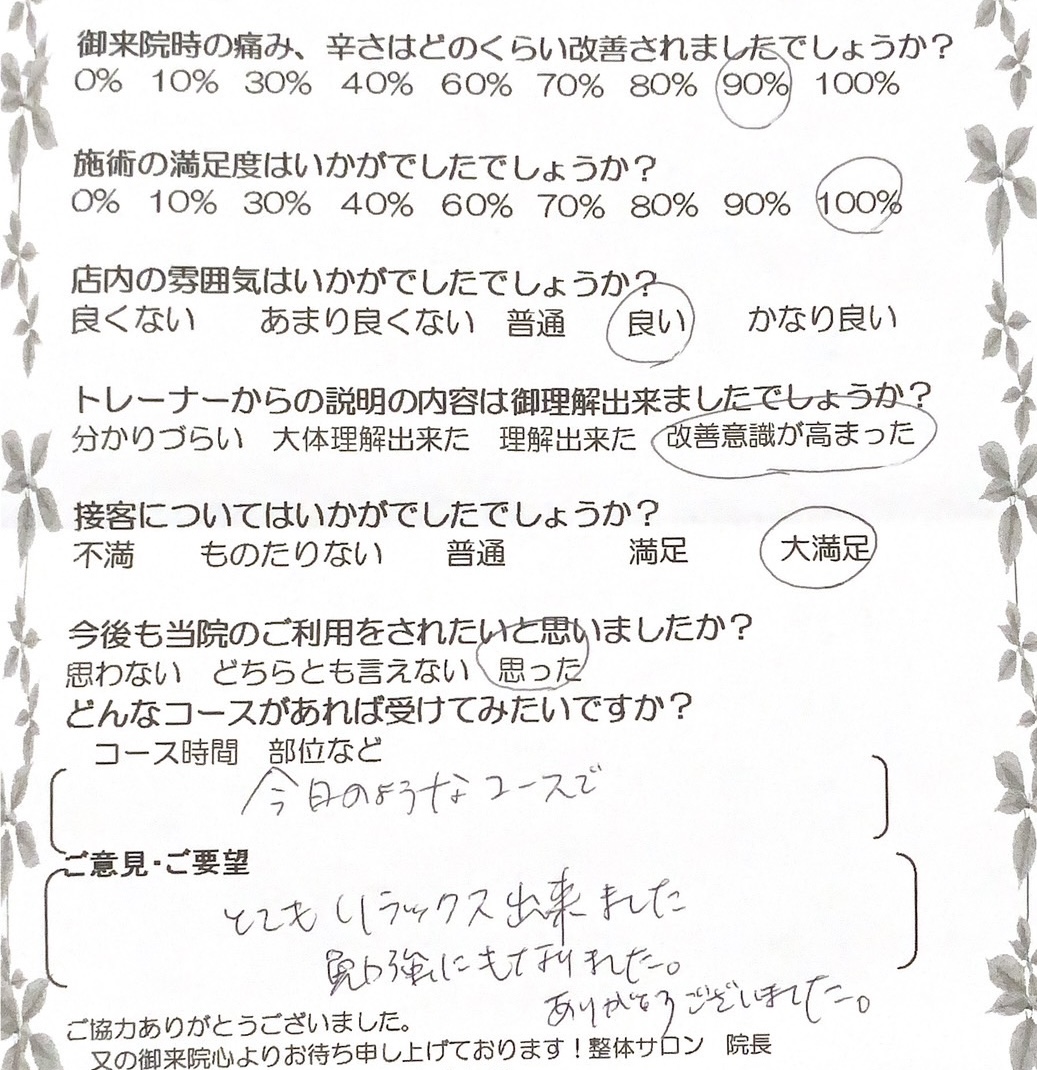 御来院時の痛み、辛さはどのくらい改善されましたでしょうか？
0% 10% 30% 40% 60% 70% 80% 90% 100%
施術の満足度はいかがでしたでしょうか？
0% 10% 30% 40% 60% 70% 80% 90% 100%
店内の雰囲気はいかがでしたでしょうか？
良くない あまり良くない 普通 良い かなり良い
トレーナーからの説明の内容は御理解出来ましたでしょうか？
分かりづらい 大体理解出来た 理解出来た 改善意識が高まった
接客についてはいかがでしたでしょうか？
不満 ものたりない 普通 満足 大満足
今後も当院のご利用をされたいと思いましたか？
思わない どちらとも言えない 思った
どんなコースがあれば受けてみたいですか？
コース時間 部位など
今日のようなコースで
ご意見・ご要望
とてもリラックス出来ました
勉強にもなりました。
ありがとうございました。
ご協力ありがとうございました。
又の御来院心よりお待ち申し上げております！整体サロン 院長